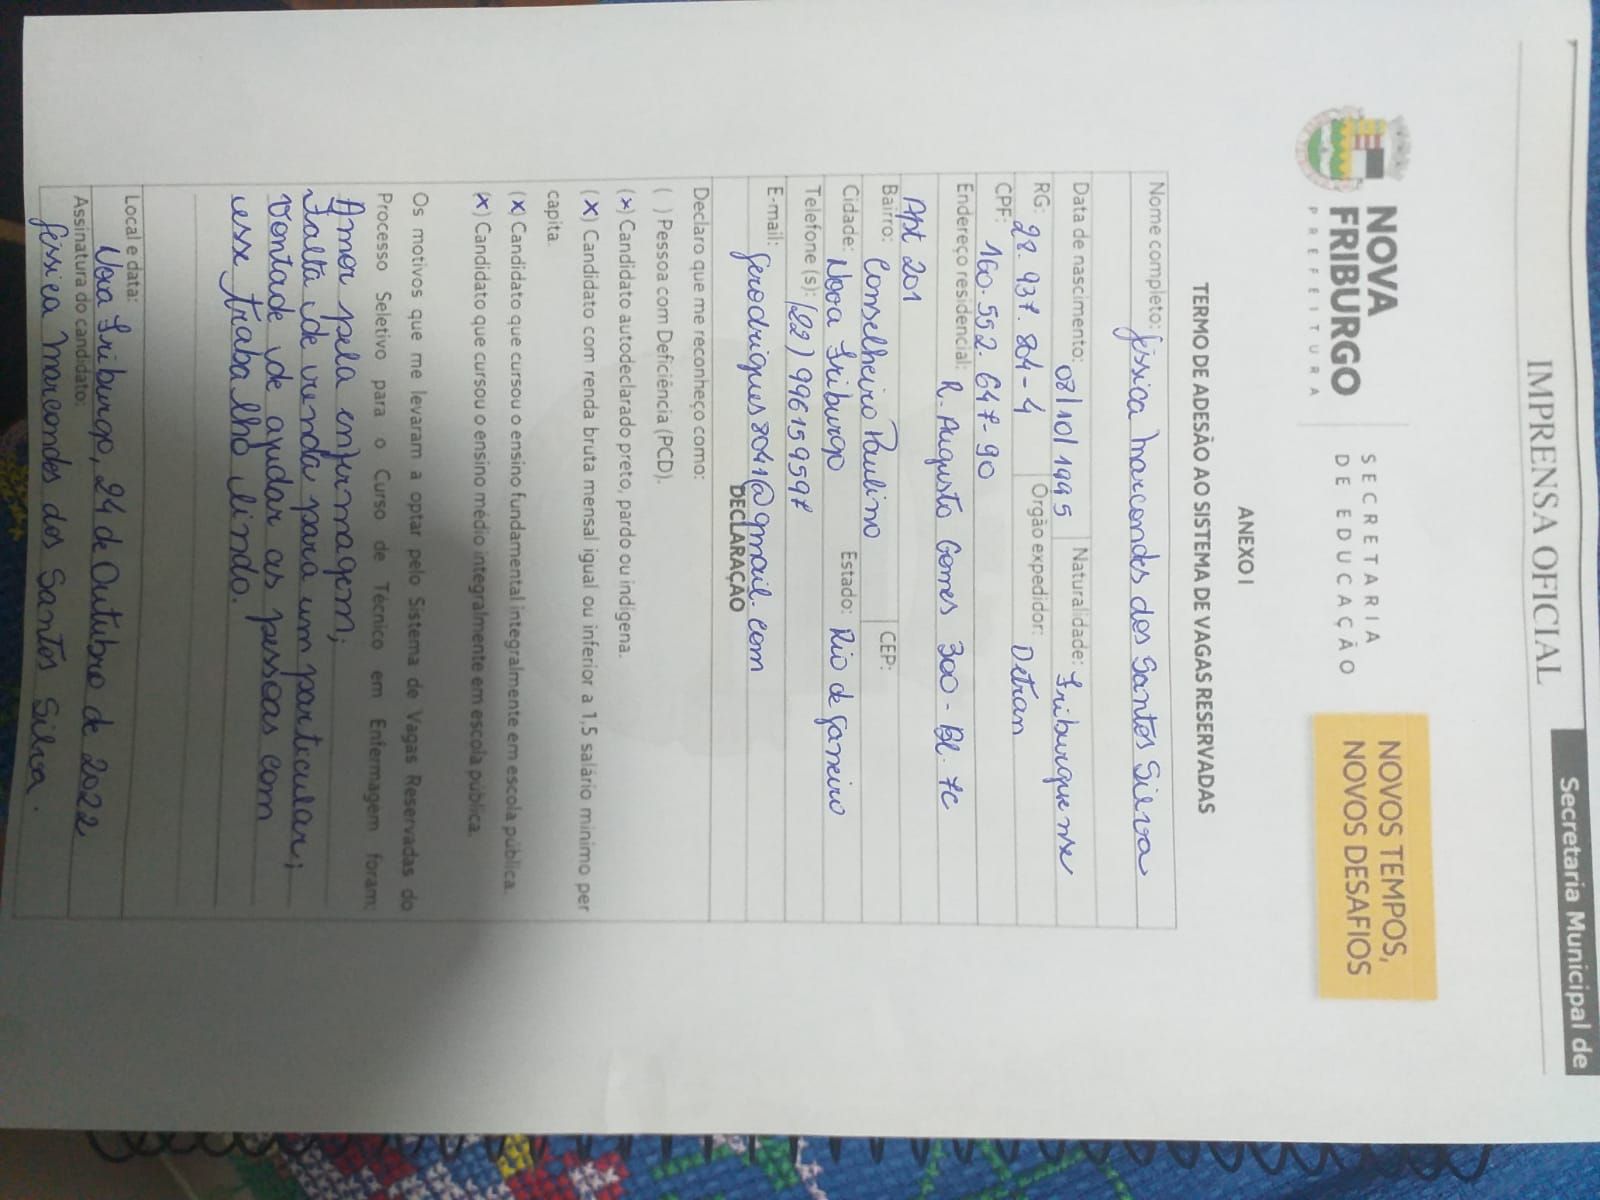 IMPRENSA OFICIAL
Secretaria Municipal de
NOVA
FRIBURGO
PREFEITURA
SECRETARIA
DE EDUCAÇÃO
NOVOS TEMPOS,
NOVOS DESAFIOS
ANEXO I
TERMO DE ADESÃO AO SISTEMA DE VAGAS RESERVADAS
Nome completo: Jéssica Marcondes dos Santos Silva
Data de nascimento: 08/10/1995 Naturalidade: Friburguense
RG: 28.937.804-4 Órgão expedidor: Detran
CPF: 160.552.647-90
Endereço residencial: R. Augusto Gomes 300 - Bl. 7C
Apt 201
Bairro: Conselheiro Paulino CEP:
Cidade: Nova Friburgo Estado: Rio de Janeiro
Telefone (s): (22) 996159597
E-mail: Jerodrigues8041@gmail.com
DECLARAÇÃO
Declaro que me reconheço como:
( ) Pessoa com Deficiência (PCD).
(x) Candidato autodeclarado preto, pardo ou indígena.
(x) Candidato com renda bruta mensal igual ou inferior a 1,5 salário mínimo per
capita.
(x) Candidato que cursou o ensino fundamental integralmente em escola pública.
(x) Candidato que cursou o ensino médio integralmente em escola pública.
Os motivos que me levaram a optar pelo Sistema de Vagas Reservadas do
Processo Seletivo para o Curso de Técnico em Enfermagem foram:
Amor pela enfermagem;
Falta de renda para um particular;
Vontade de ajudar as pessoas com
esse trabalho lindo.
Local e data:
Nova Friburgo, 24 de Outubro de 2022
Assinatura do candidato:
Jéssica Marcondes dos Santos Silva.